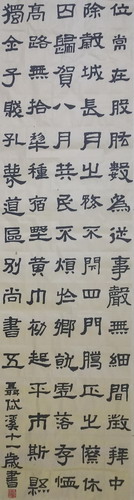 位常在股肱數為從事聲無細聞徵拜中
除穀城長月之務不閉四門臘正之僚休
囚歸賀八月民不煩於鄉就虛落存恤
高路無拾犁種宿野黃巾初起平市斯縣
獨全子賤孔蔑道區別尚書五
岱溪十一歲書